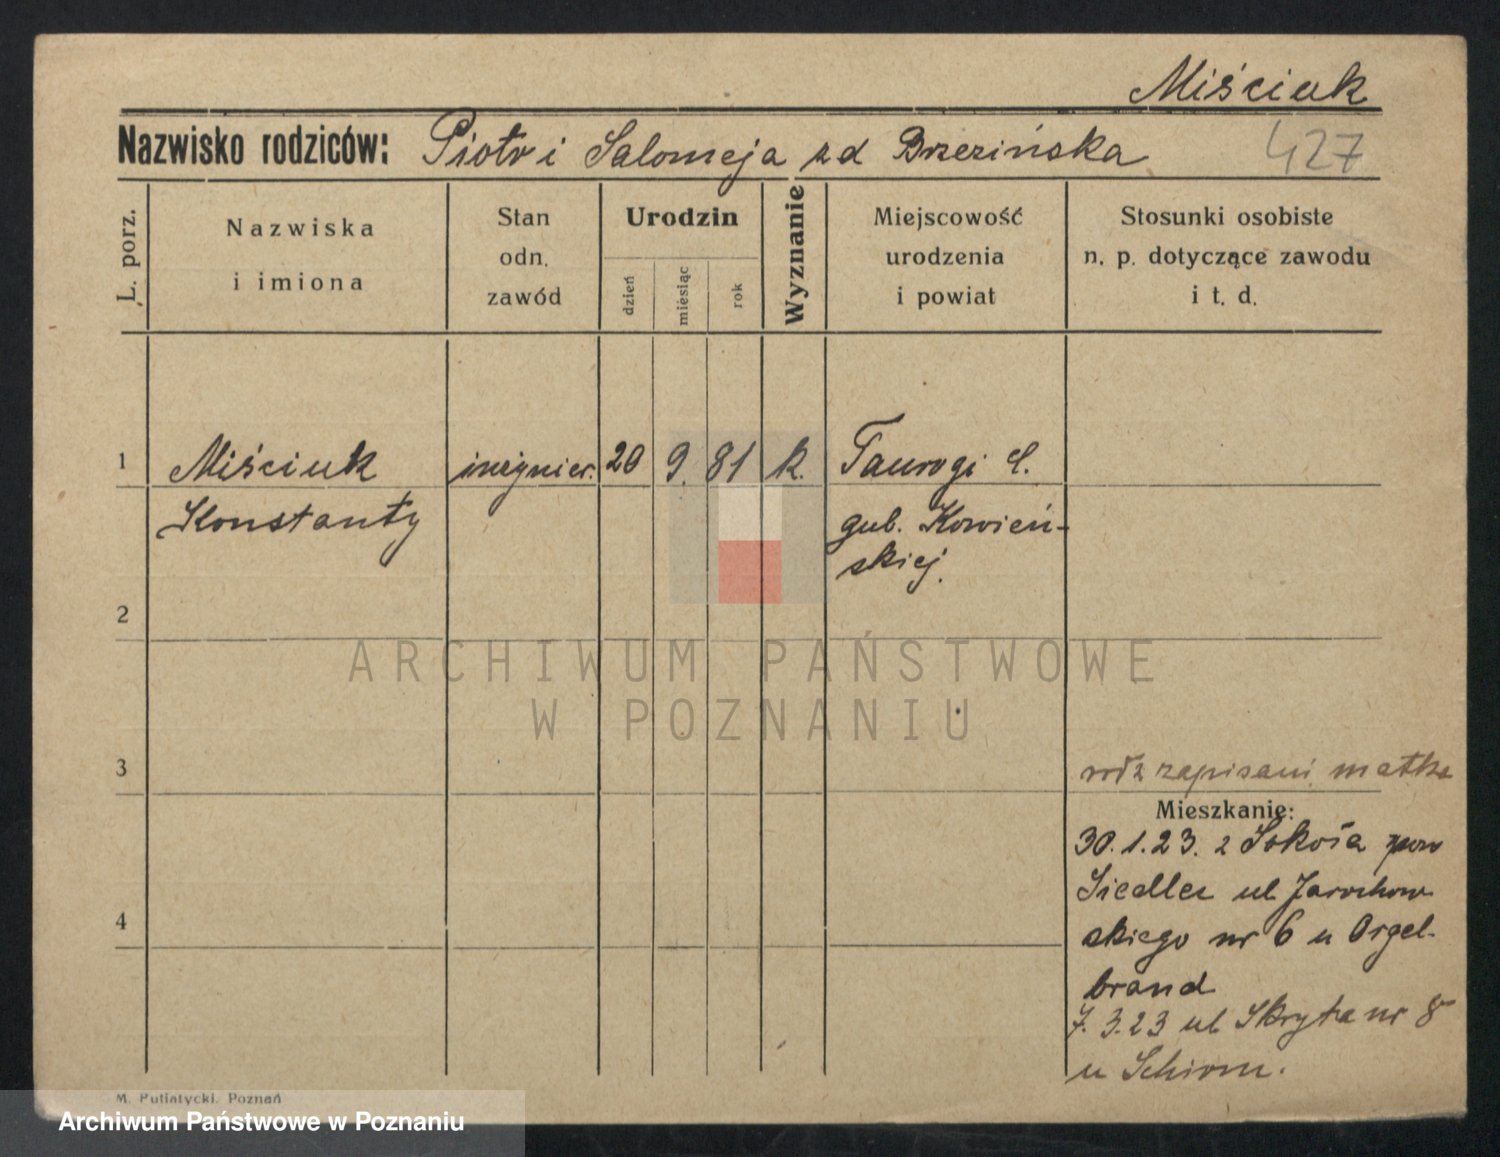 Miściuk
Nazwisko rodziców: Piotr i Salomeja zd Brzezińska
427
L. porz.
Nazwiska
i imiona
Stan
odn.
zawód
Urodzin
dzień
miesiąc
rok
Wyznanie
Miejscowość
urodzenia
i powiat
Stosunki osobiste
n. p. dotyczące zawodu
i t. d.
1 Miściuk inżynier. 20 9. 81 k. Taurogi
Konstanty gub. Kowień-
skiej.
2
ARCHIWUM PAŃSTWOWE
W POZNANIU
3
zapisani matka
Mieszkanie:
30.1.23. z pow
Siedlce ul Jarochow
skiego nr 6 u Orgel-
brand
7.3.23 ul Skryta nr 8
u
4
M. Putiatycki. Poznań
Archiwum Państwowe w Poznaniu